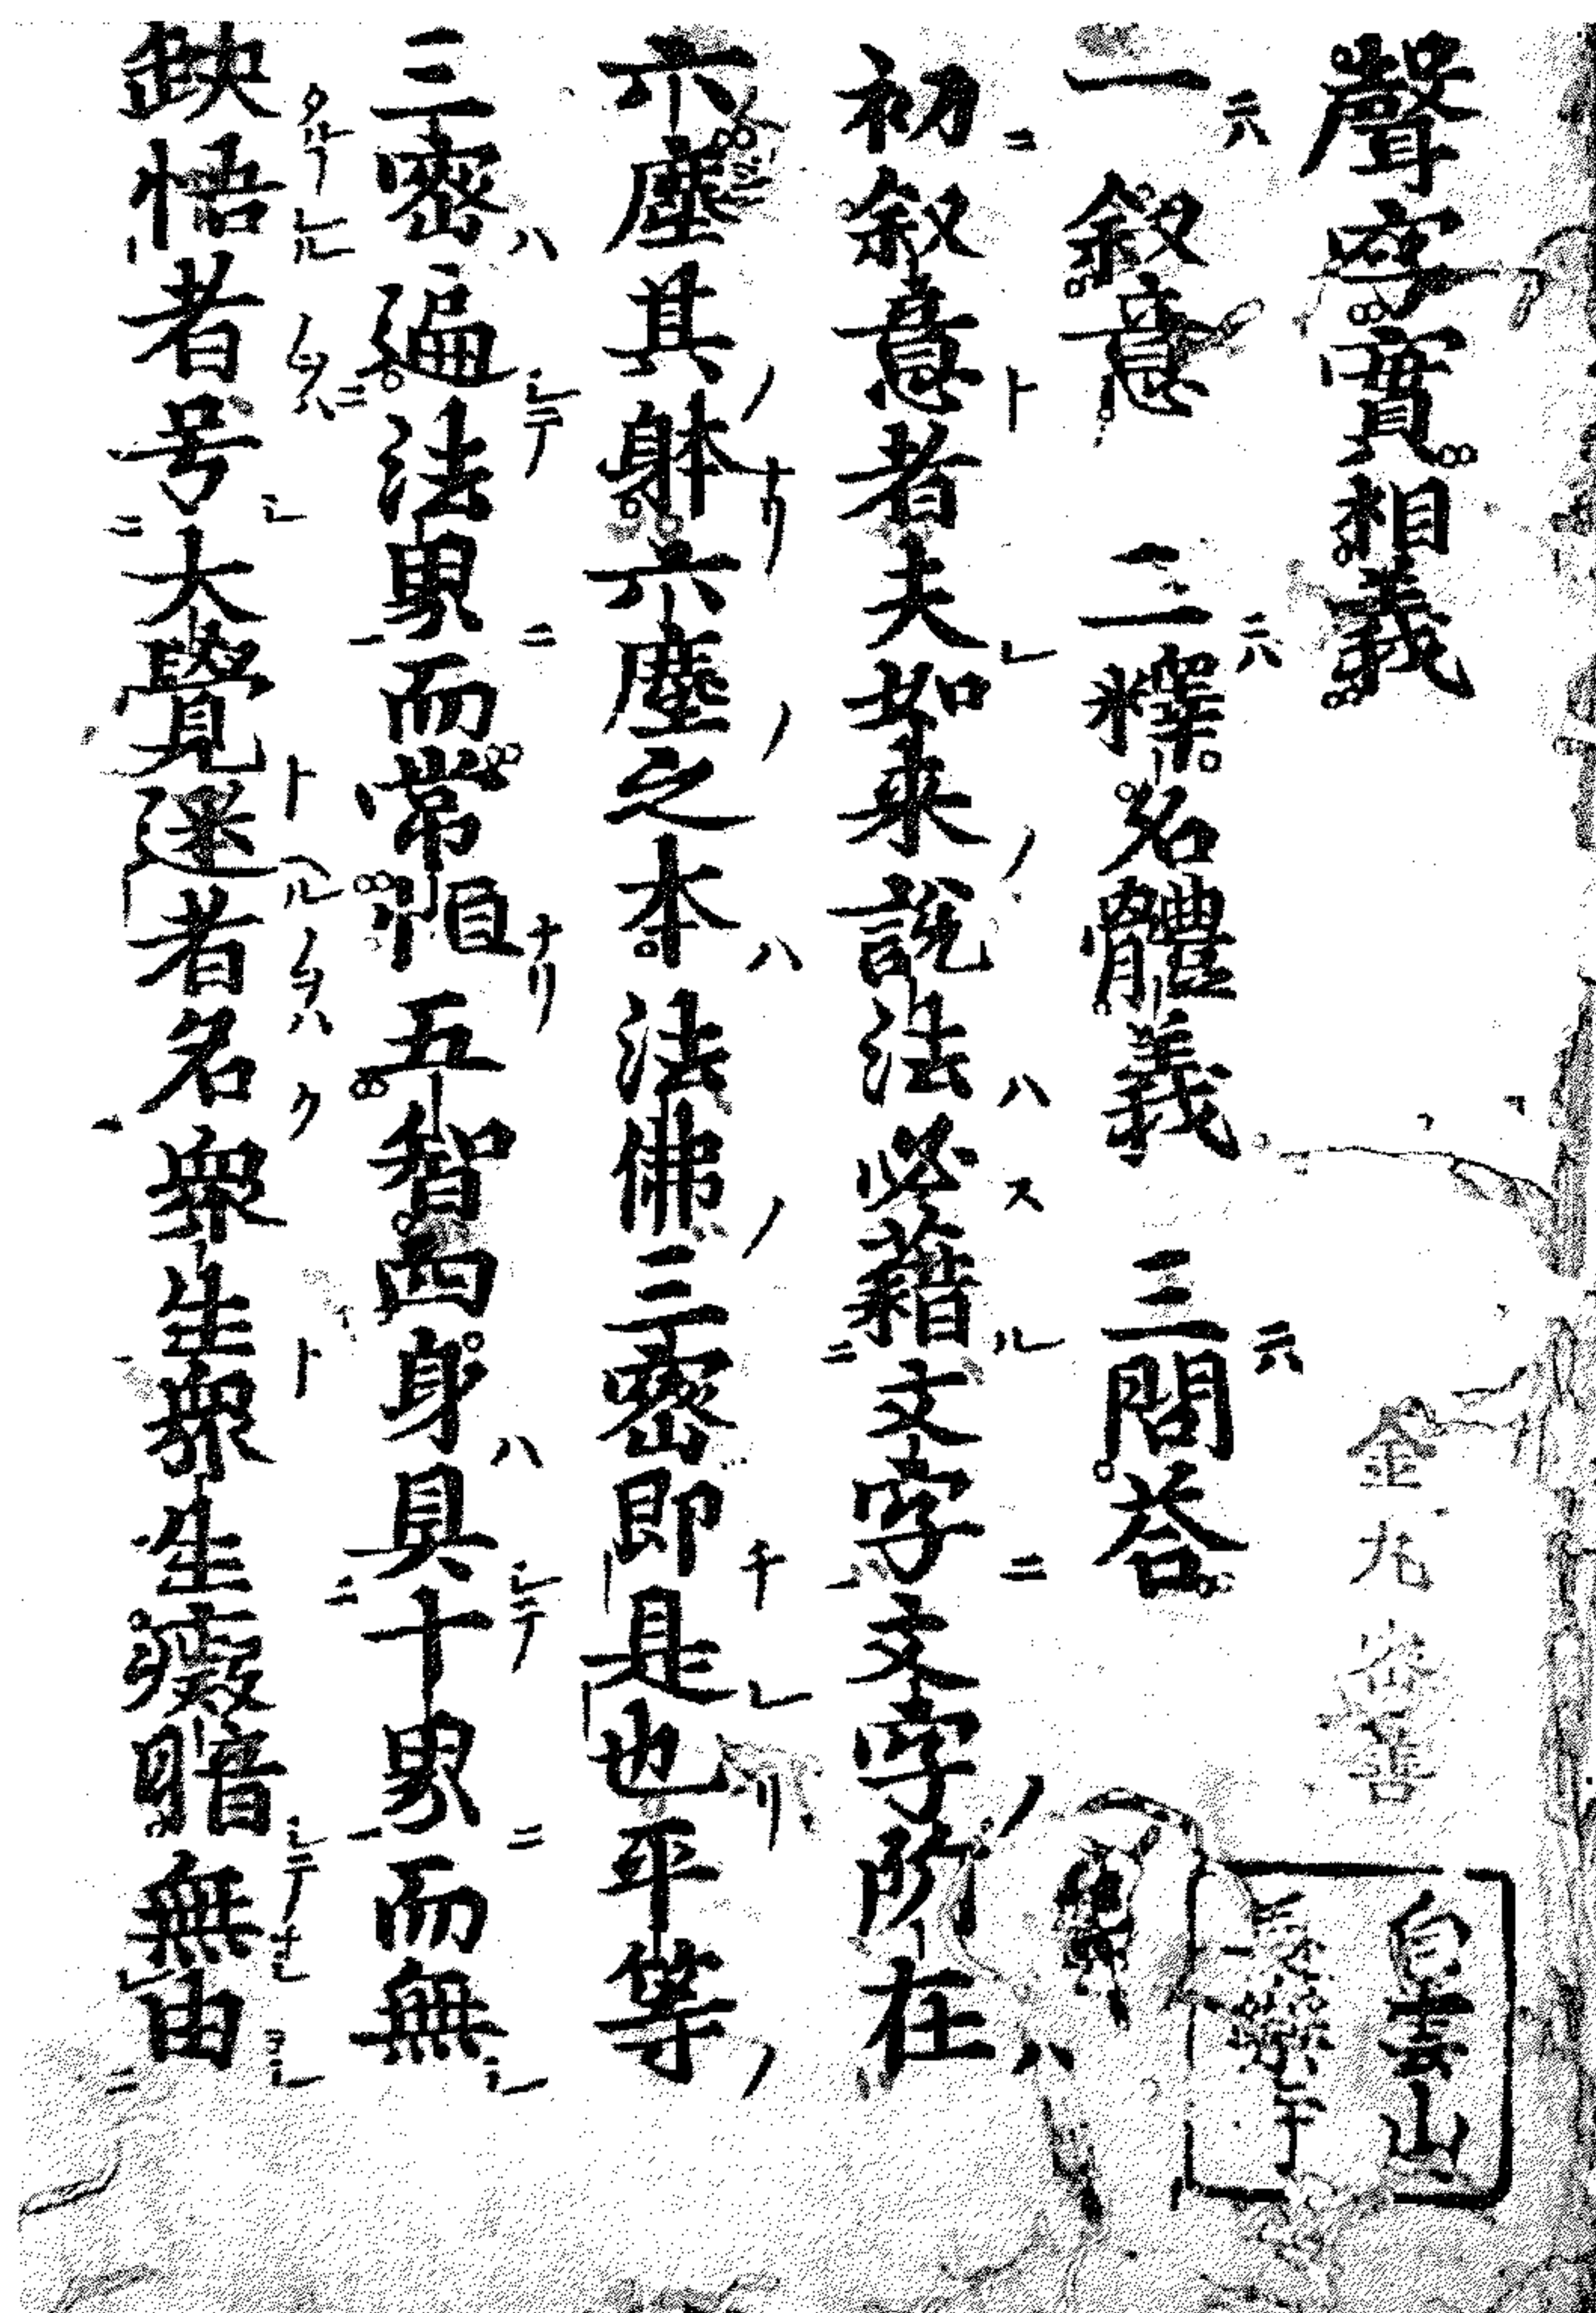 聲字實相義
金九密善
白雲山
一叙意　二釋名體義　三問荅
初叙意者夫如来說法必藉文字文字所在
六塵其躰六塵之本法佛三密即是也平等
三密遍法界而常恒五智四身具十界而無
缺悟者号大覺迷者名衆生衆生癡暗無由